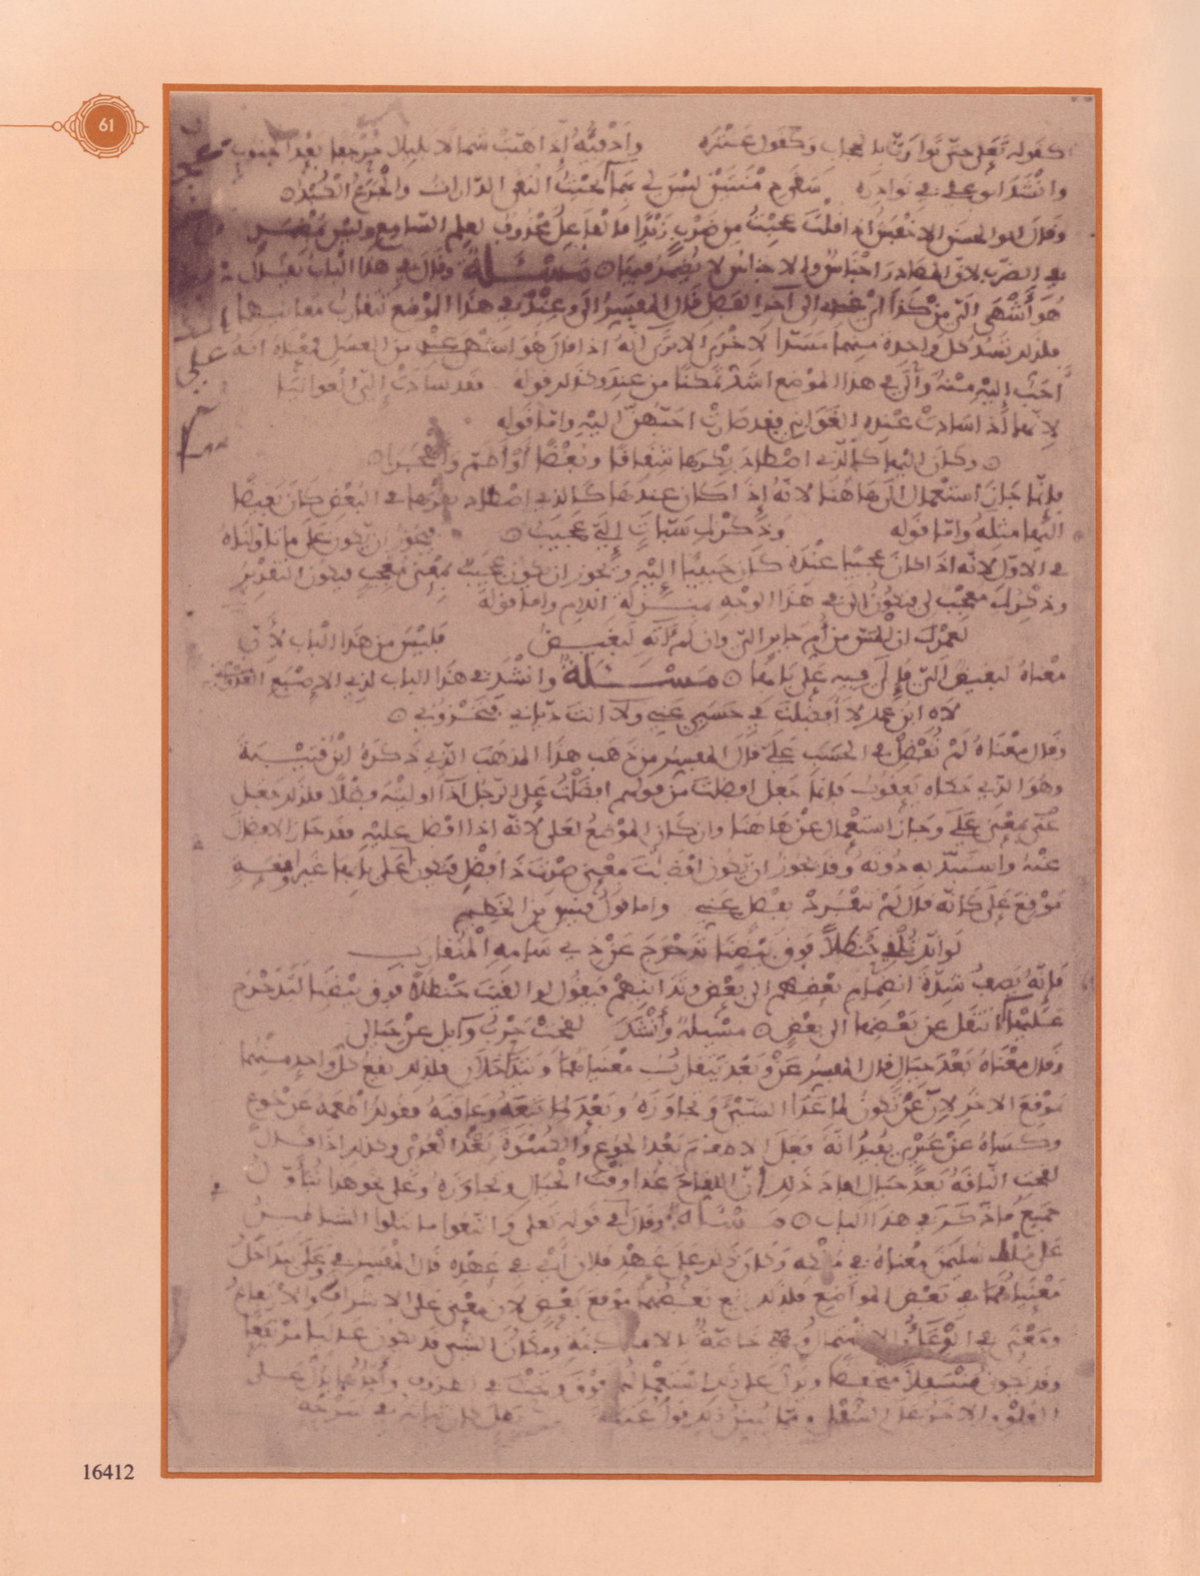 61
كقوله تعلى حتى توارت بالحجاب وكقول عنترة وادفئه إذا هبت شمالا بليلا حرجفا بعد الجنوب
وانشد ابو علي في نوادره
وقال ابو الحسن الاخفش اذا قلت عجبت من ضرب زيدا فالفاعل محذوف لعلم السامع وليس بمضمر
في الضرب لان المصادر اجناس والاجناس لا يضمر فيها مسئلة وقال في هذا الباب يقال
هو أشهى الي من كذا اي عندي الى آخر الفصل قال المفسر الى وعند في هذا الموضع تتقارب معانيهما
فلذلك تسد كل واحدة منهما مسد الاخرى الا ترى انه اذا قال هو اشهى عندي من العسل فمعناه انه
أحب إليه منه وإلى في هذا الموضع اشد تمكنا من عند وكذلك قوله فقد سادت إلي الغوانيا
لانها إذا سادت عنده الغواني فقد صارت احبهن اليه واما قوله
وكان اليها كالذي اصطاد بكرها شقاقا وبغضا أو أطم وأهجرا
فإنما جاز استعمال إلى هاهنا لانه إذا كان عندها كالذي اصطاد بكرها في البغض كان بغيضا
اليها مثله واما قوله وذكرك سبات إلي عجيب فيجوز ان يكون على ما تأولناه
في الاول لانه اذا كان عجيبا عنده كان حبيبا إليه ويجوز ان يكون عجيب بمعنى معجب فيكون التقدير
وذكرك معجب لي فتكون الى في هذا الوجه بمنزلة اللام واما قوله
لعمرك ان المس من أم جابر الي وان لم آته لبغيض فليس من هذا الباب لأن
معناه لبغيض الي فإلى فيه على بابها مسئلة وانشد في هذا الباب لذي الاصبع العدواني
لاه ابن عمك لا أفضلت في حسب عني ولا انت دياني فتخزوني
وقال معناه لم تفضل في الحسب علي قال المفسر من ذهب هذا المذهب الذي ذكره ابن قتيبة
وهو الذي حكاه يعقوب فإنما جعل افضلت من قولهم افضلت على الرجل اذا اوليته فضلا فلذلك جعل
عني بمعنى علي وجاز استعمال عن هاهنا وان كان الموضع لعلى لانه اذا افضل عليه فقد حاز الافضال
عنه واستبد به دونه وقد يجوز ان يكون افضلت بمعنى صرت ذا فضل فتكون على بابها غير واقعة
موقع على كانه قال لم تنفرد بفضل عني واما قول قيس بن الخطيم
لو انك تلقي حنظلا فوق بيضنا تدحرج عن ذي سامه المتقارب
فإنه يصف شدة انضمام بعضهم الى بعض وتدانيهم فيقول لو القيت حنظلا فوق بيضنا لتدحرج
عليها انتقل عن بعضها الى بعض مسئلة وأنشد لقحت حرب وآئل عن حيال
وقال معناه بعد حيال قال المفسر عن وبعد يتقارب معنياهما ويتداخلان فلذلك يقع كل واحد منهما
موقع الاخر لان عن تكون لما عدا الشيء وتجاوزه وبعد لما تبعه وعاقبه فقولك اطعمه عن جوع
وكساه عن عري يفيد انه فعل الاطعام بعد الجوع والكسوة بعد العري وكذلك اذا قال
لقحت الناقة بعد حيال افاد ذلك أن اللقاح عدا وقت الحيال وتجاوزه وعلى نحو هذا يتأول
جميع ما ذكر في هذا الباب مسئلة وقال في قوله تعلى واتبعوا ما تتلوا الشياطين
على ملك سليمن معناه في ملكه وكان ذلك على عهد فلان أي في عهده قال المفسر في وعلى يتداخل
معنياهما في بعض المواضع فلذلك يقع بعضهما موقع بعض لان معنى على الاشراف والارتفاع
ومعنى في الوعاء والاشتمال وهي خاصة بالامكنة ومكان الشيء قد يكون عاليا مرتفعا
وقد يكون متسفلا منخفضا ويدل على ذلك استعمالهم فوق وتحت في الظروف وأحدهما يدل على
العلو والاخر على السفل ومما يبين ذلك قول عنترة بطل كان ثيابه في سرحة
16412